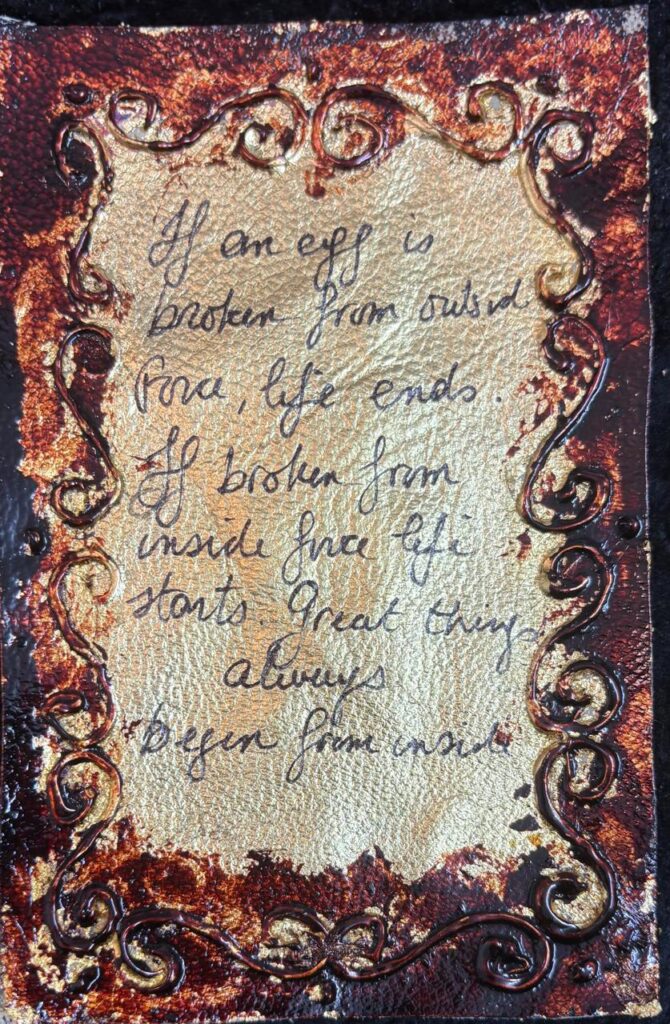 If an egg is
broken from outsid
Force, life ends.
If broken from
inside force life
starts. Great things
always
begin from inside